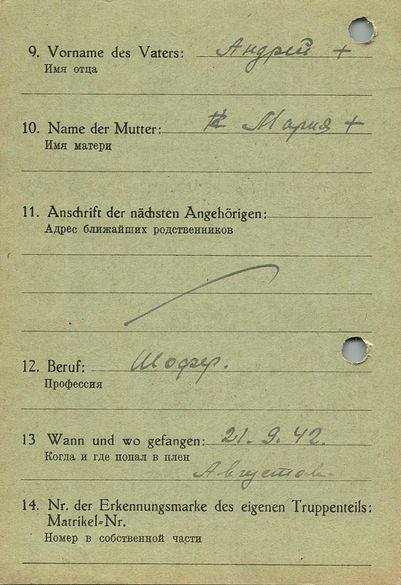 9. Vorname des Vaters: Андрей +
Имя отца
10. Name der Mutter: Мария +
Имя матери
11. Anschrift der nächsten Angehörigen:
Адрес ближайших родственников
12. Beruf: Шофер.
Профессия
13 Wann und wo gefangen: 21. 9. 42.
Когда и где попал в плен
Августов
14. Nr. der Erkennungsmarke des eigenen Truppenteils:
Matrikel-Nr.
Номер в собственной части